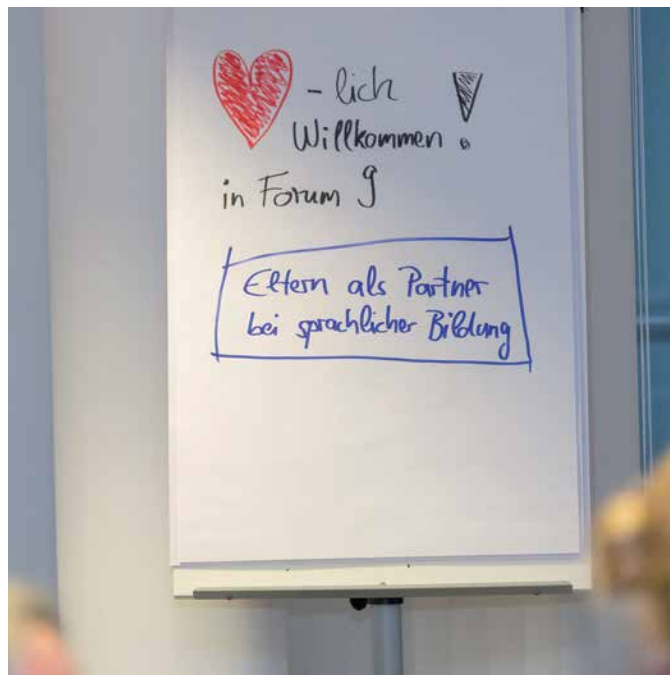 - lich
Willkommen !
in Forum 9
Eltern als Partner
bei sprachlicher Bildung